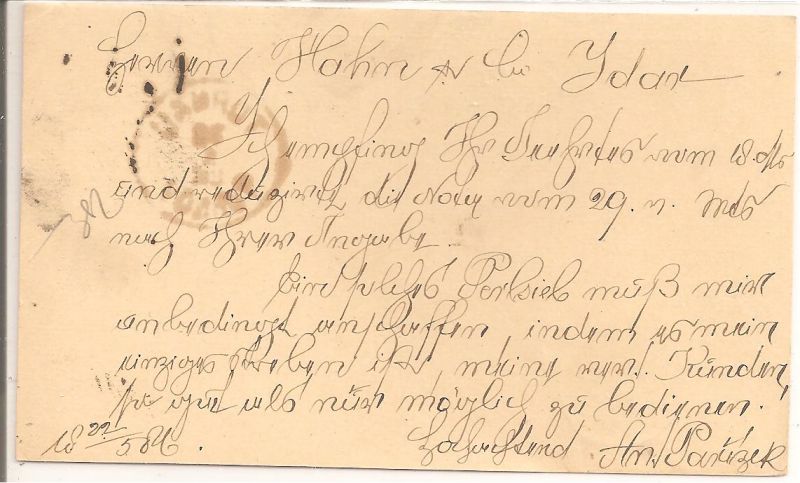 Herren Hahn & Co Idar
Ich empfing Ihr Geehrtes vom 18. d/Ms
und reduzirte die Nota vom 29. v. Mts
nach Ihrer Angabe.
Ein solches Perlsieb muß mir
unbedingt anschaffen indem es mein
einziges Streben ist meine wert. Kunden,
so gut als nur möglich zu bedienen.
18 22/5 86. Hochachtend Ant. Pařizek